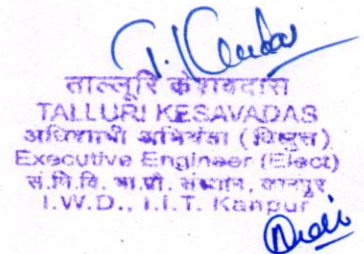 ताल्लूरि केशवदास
TALLURI KESAVADAS
अधिशाषी अभियंता (विद्युत)
Executive Engineer (Elect)
सं.नि.वि. भा.प्रौ. संस्थान, कानपुर
I.W.D., I.I.T. Kanpur